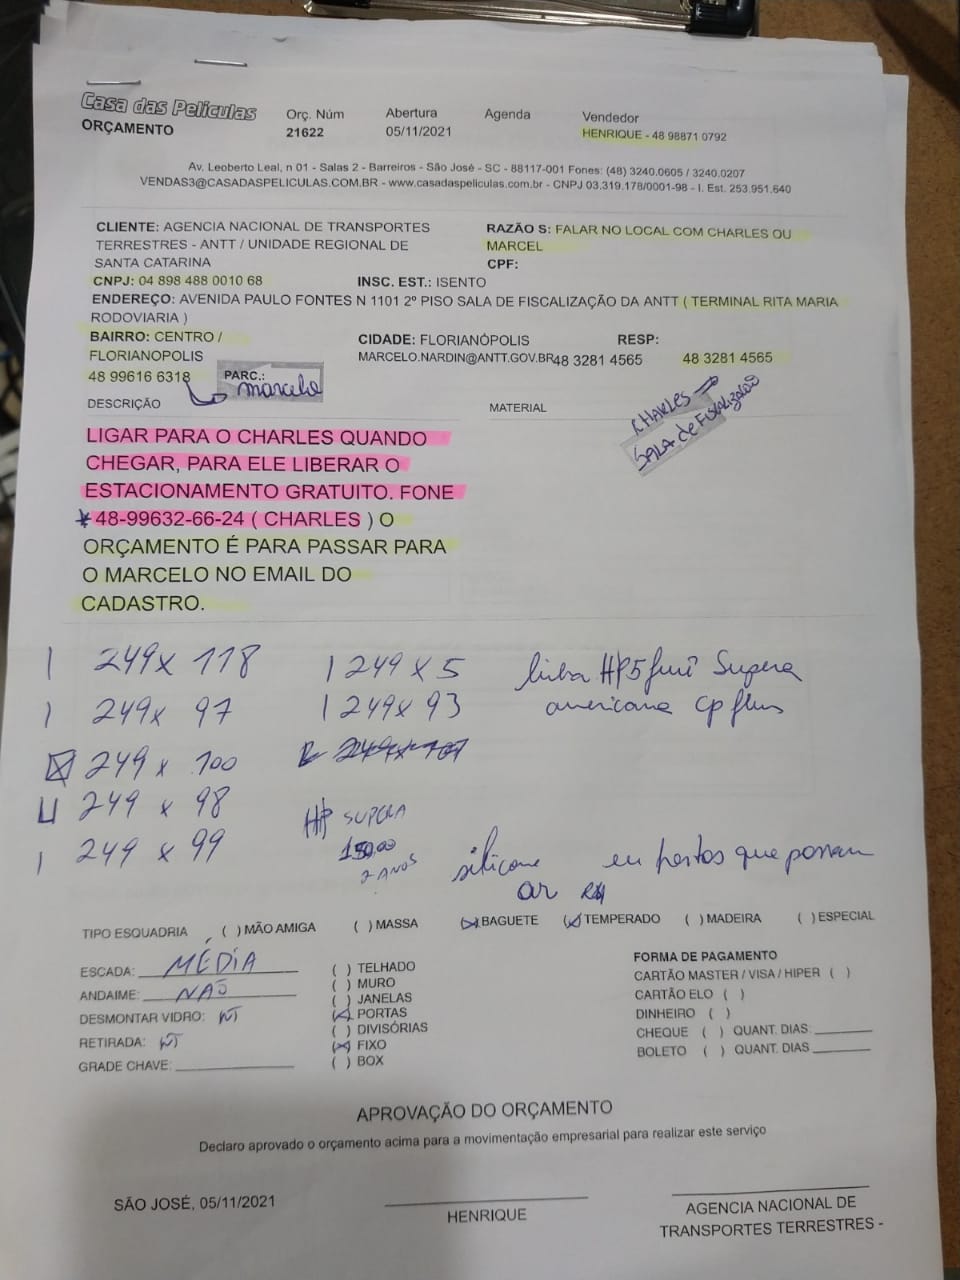 Casa das Películas
ORÇAMENTO
Orç. Núm
21622
Abertura
05/11/2021
Agenda
Vendedor
HENRIQUE - 48 98871 0792
Av. Leoberto Leal, n 01 - Salas 2 - Barreiros - São José - SC - 88117-001 Fones: (48) 3240.0605 / 3240.0207
VENDAS3@CASADASPELICULAS.COM.BR - www.casadaspeliculas.com.br - CNPJ 03.319.178/0001-98 - I. Est. 253.951.640
CLIENTE: AGENCIA NACIONAL DE TRANSPORTES
TERRESTRES - ANTT / UNIDADE REGIONAL DE
SANTA CATARINA
RAZÃO S: FALAR NO LOCAL COM CHARLES OU
MARCEL
CPF:
CNPJ: 04 898 488 0010 68
INSC. EST.: ISENTO
ENDEREÇO: AVENIDA PAULO FONTES N 1101 2º PISO SALA DE FISCALIZAÇÃO DA ANTT ( TERMINAL RITA MARIA
RODOVIARIA )
BAIRRO: CENTRO /
FLORIANOPOLIS
CIDADE: FLORIANÓPOLIS
RESP:
MARCELO.NARDIN@ANTT.GOV.BR 48 3281 4565
48 3281 4565
48 99616 6318
PARC.:
marcelo
DESCRIÇÃO
MATERIAL
CHARLES
SALA de FISCALIZAÇÃO
LIGAR PARA O CHARLES QUANDO
CHEGAR, PARA ELE LIBERAR O
ESTACIONAMENTO GRATUITO. FONE
* 48-99632-66-24 ( CHARLES ) O
ORÇAMENTO É PARA PASSAR PARA
O MARCELO NO EMAIL DO
CADASTRO.
1 249 x 118
1 249 x 5
linha HP5 Supera
1 249 x 97
1 249 x 93
americana cp
249 x 100
249 x 98
HP SUPERA
1 249 x 99
150,00
2 ANOS
silicone em pontos que possam
ar
TIPO ESQUADRIA ( ) MÃO AMIGA ( ) MASSA (x) BAGUETE (x) TEMPERADO ( ) MADEIRA ( ) ESPECIAL
ESCADA: MÉDIA
ANDAIME: NÃO
DESMONTAR VIDRO: Ñ
RETIRADA: Ñ
GRADE CHAVE:
( ) TELHADO
( ) MURO
( ) JANELAS
(x) PORTAS
( ) DIVISÓRIAS
(x) FIXO
( ) BOX
FORMA DE PAGAMENTO
CARTÃO MASTER / VISA / HIPER ( )
CARTÃO ELO ( )
DINHEIRO ( )
CHEQUE ( ) QUANT. DIAS
BOLETO ( ) QUANT. DIAS
APROVAÇÃO DO ORÇAMENTO
Declaro aprovado o orçamento acima para a movimentação empresarial para realizar este serviço
SÃO JOSÉ, 05/11/2021
HENRIQUE
AGENCIA NACIONAL DE
TRANSPORTES TERRESTRES -